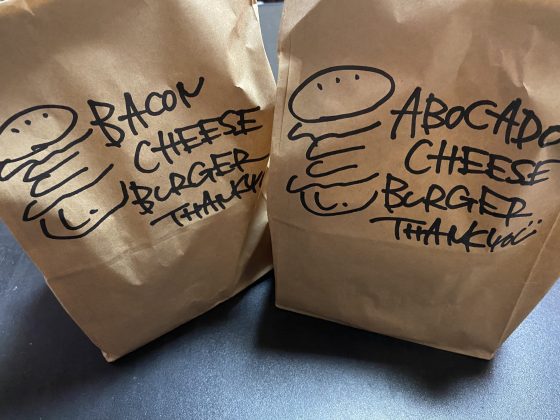 BACON
CHEESE
BURGER
THANKYOU
ABOCADO
CHEESE
BURGER
THANKYOU